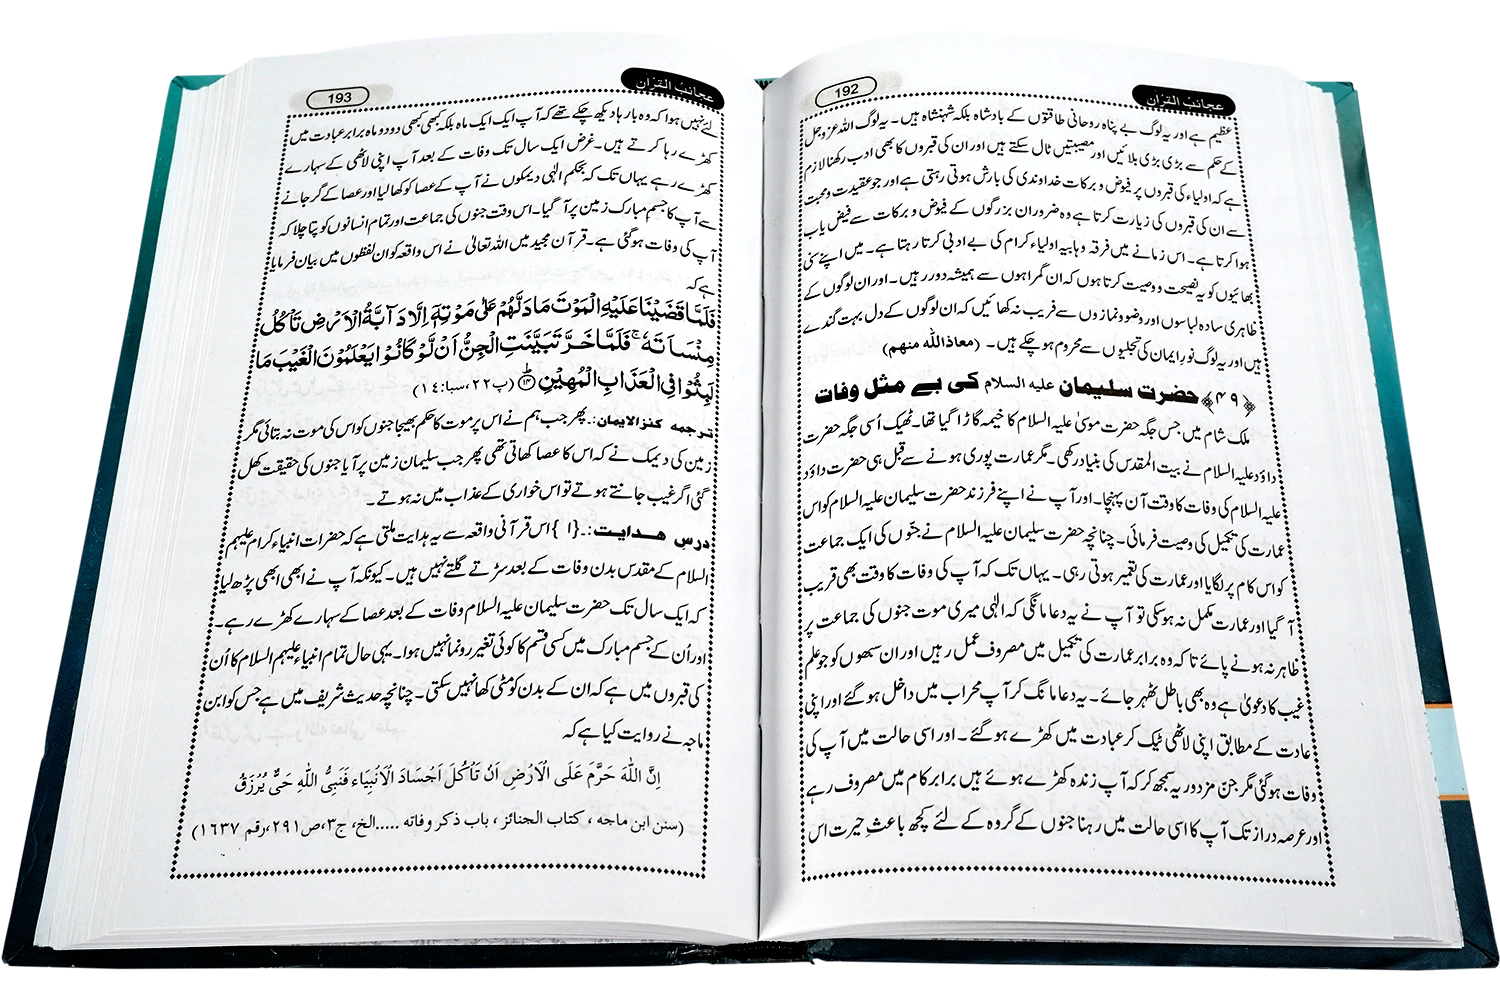 192
عجائب القرآن
عظیم ہے اور یہ لوگ بے پناہ روحانی طاقتوں کے بادشاہ بلکہ شہنشاہ ہیں۔ یہ لوگ اللہ عزوجل
کے حکم سے بڑی بڑی بلائیں اور مصیبتیں ٹال سکتے ہیں اور ان کی قبروں کا بھی ادب رکھنا لازم
ہے کہ اولیاء کی قبروں پر فیوض و برکات خداوندی کی بارش ہوتی رہتی ہے اور جو عقیدت ومحبت
سے ان کی قبروں کی زیارت کرتا ہے وہ ضرور ان بزرگوں کے فیوض و برکات سے فیض یاب
ہوا کرتا ہے۔ اس زمانے میں فرقہ وہابیہ اولیاء کرام کی بے ادبی کرتا رہتا ہے۔ میں اپنے سنی
بھائیوں کو یہ نصیحت و وصیت کرتا ہوں کہ ان گمراہوں سے ہمیشہ دور رہیں۔ اور ان لوگوں کے
ظاہری سادہ لباسوں اور وضو و نمازوں سے فریب نہ کھائیں کہ ان لوگوں کے دل بہت گندے
ہیں اور یہ لوگ نورِ ایمان کی تجلیوں سے محروم ہو چکے ہیں۔ (معاذاللہ منهم)
﴿۴۹﴾ حضرت سلیمان علیہ السلام کی بے مثل وفات
ملک شام میں جس جگہ حضرت موسیٰ علیہ السلام کا خیمہ گاڑا گیا تھا۔ ٹھیک اُسی جگہ حضرت
داؤد علیہ السلام نے بیت المقدس کی بنیاد رکھی۔ مگر عمارت پوری ہونے سے قبل ہی حضرت داؤد
علیہ السلام کی وفات کا وقت آن پہنچا۔ اور آپ نے اپنے فرزند حضرت سلیمان علیہ السلام کو اس
عمارت کی تکمیل کی وصیت فرمائی۔ چنانچہ حضرت سلیمان علیہ السلام نے جنّوں کی ایک جماعت
کو اس کام پر لگایا اور عمارت کی تعمیر ہوتی رہی۔ یہاں تک کہ آپ کی وفات کا وقت بھی قریب
آ گیا اور عمارت مکمل نہ ہو سکی تو آپ نے یہ دعا مانگی کہ الٰہی میری موت جنوں کی جماعت پر
ظاہر نہ ہونے پائے تاکہ وہ برابر عمارت کی تکمیل میں مصروف عمل رہیں اور ان سبھوں کو جو علم
غیب کا دعویٰ ہے وہ بھی باطل ٹھہر جائے۔ یہ دعا مانگ کر آپ محراب میں داخل ہو گئے اور اپنی
عادت کے مطابق اپنی لاٹھی ٹیک کر عبادت میں کھڑے ہو گئے۔ اور اسی حالت میں آپ کی
وفات ہو گئی مگر جن مزدور یہ سمجھ کر کہ آپ زندہ کھڑے ہوئے ہیں برابر کام میں مصروف رہے
اور عرصہ دراز تک آپ کا اسی حالت میں رہنا جنوں کے گروہ کے لئے کچھ باعثِ حیرت اس
193
عجائب القرآن
لئے نہیں ہوا کہ وہ بارہا دیکھ چکے تھے کہ آپ ایک ایک ماہ بلکہ کبھی کبھی دو دو ماہ برابر عبادت میں
کھڑے رہا کرتے ہیں۔ غرض ایک سال تک وفات کے بعد آپ اپنی لاٹھی کے سہارے
کھڑے رہے یہاں تک کہ بحکم الٰہی دیمکوں نے آپ کے عصا کو کھا لیا اور عصا کے گر جانے
سے آپ کا جسم مبارک زمین پر آ گیا۔ اس وقت جنوں کی جماعت اور تمام انسانوں کو پتا چلا کہ
آپ کی وفات ہو گئی ہے۔ قرآن مجید میں اللہ تعالیٰ نے اس واقعہ کو ان لفظوں میں بیان فرمایا
ہے کہ
فَلَمَّا قَضَيْنَا عَلَيْهِ الْمَوْتَ مَا دَلَّهُمْ عَلٰى مَوْتِهٖٓ اِلَّا دَآبَّةُ الْاَرْضِ تَاْكُلُ
مِنْسَاَتَهٗ ۚ فَلَمَّا خَرَّ تَبَيَّنَتِ الْجِنُّ اَنْ لَّوْ كَانُوْا يَعْلَمُوْنَ الْغَيْبَ مَا
لَبِثُوْا فِي الْعَذَابِ الْمُهِيْنِ ۞ؕ (پ۲۲، سبا: ۱۴)
ترجمه کنزالایمان:۔ پھر جب ہم نے اس پر موت کا حکم بھیجا جنوں کو اس کی موت نہ بتائی مگر
زمین کی دیمک نے کہ اس کا عصا کھاتی تھی پھر جب سلیمان زمین پر آیا جنوں کی حقیقت کھل
گئی اگر غیب جانتے ہوتے تو اس خواری کے عذاب میں نہ ہوتے۔
درس هدایت:۔{۱} اس قرآنی واقعہ سے یہ ہدایت ملتی ہے کہ حضرات انبیاء کرام علیہم
السلام کے مقدس بدن وفات کے بعد سڑتے گلتے نہیں ہیں۔ کیونکہ آپ نے ابھی ابھی پڑھ لیا
کہ ایک سال تک حضرت سلیمان علیہ السلام وفات کے بعد عصا کے سہارے کھڑے رہے۔
اور اُن کے جسم مبارک میں کسی قسم کا کوئی تغیر رونما نہیں ہوا۔ یہی حال تمام انبیاء علیہم السلام کا اُن
کی قبروں میں ہے کہ ان کے بدن کو مٹی کھا نہیں سکتی۔ چنانچہ حدیث شریف میں ہے جس کو ابن
ماجہ نے روایت کیا ہے کہ
اِنَّ اللّٰهَ حَرَّمَ عَلَى الْاَرْضِ اَنْ تَاْكُلَ اَجْسَادَ الْاَنْبِيَاءِ فَنَبِيُّ اللّٰهِ حَيٌّ يُرْزَقُ
(سنن ابن ماجه ، کتاب الجنائز ، باب ذکر وفاته .....الخ، ج۳،ص۲۹۱،رقم ۱٦۳۷)